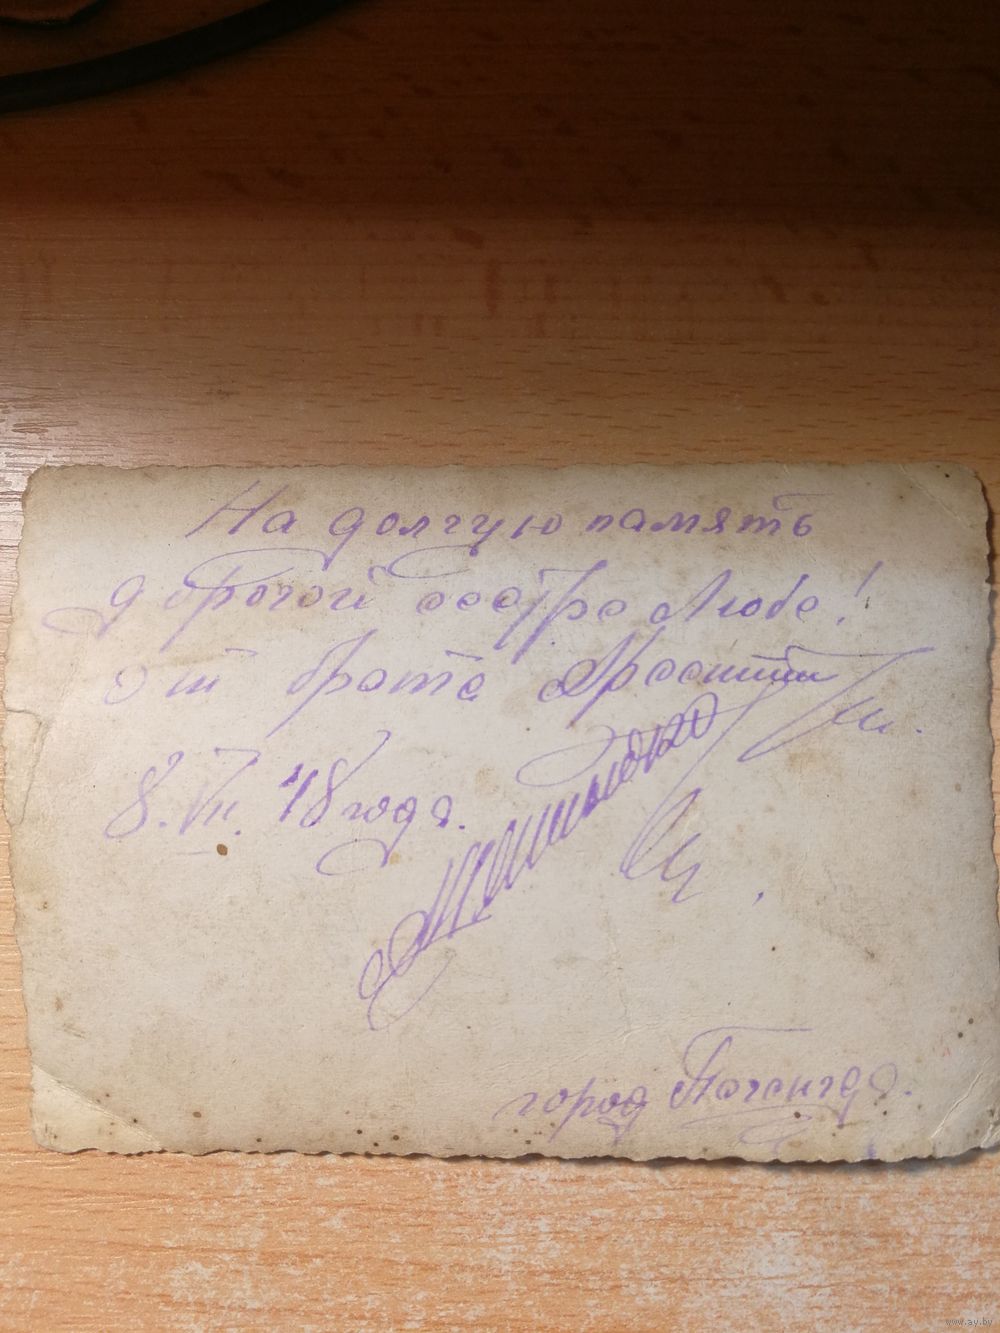 На долгую память
дорогой сестре Любе!
от брата
8.VII.48 года.
город Печенга.
www.ay.by